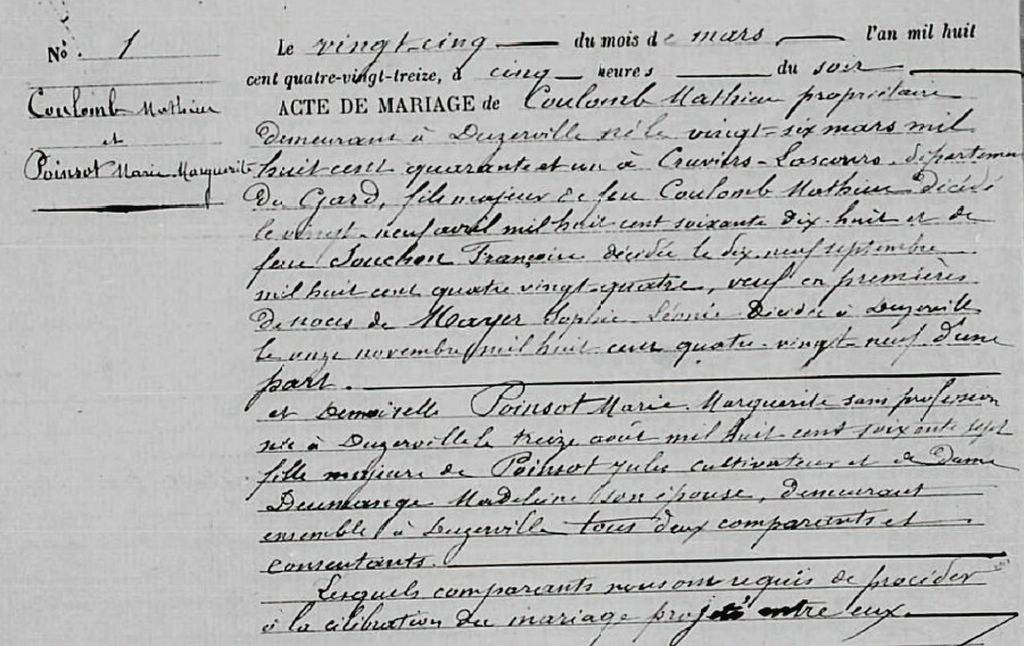 No. 1
Coulomb Mathieu
et
Poinsot Marie Marguerite
Le vingt-cinq du mois de mars l'an mil huit
cent quatre-vingt-treize, à cinq heures du soir
ACTE DE MARIAGE de Coulomb Mathieu propriétaire
demeurant à Duzerville né le vingt-six mars mil
huit cent quarante et un à Cruviers-Lascours, département
du Gard, fils majeur de feu Coulomb Mathieu décédé
le vingt-neuf avril mil huit cent soixante dix-huit et de
feue Souchon Françoise décédée le dix-neuf septembre
mil huit cent quatre vingt-quatre, veuf en premières
de noces de Mayer Sophie Léonie décédée à Duzerville
le onze novembre mil huit cent quatre-vingt-neuf d'une
part.
et Demoiselle Poinsot Marie Marguerite sans profession
née à Duzerville le treize août mil huit cent soixante sept
fille majeure de Poinsot Jules cultivateur et de Dame
Deumange Madeleine son épouse, demeurant
ensemble à Duzerville tous deux comparants et
consentants.
Lesquels comparants nous ont requis de procéder
à la célébration du mariage projeté entre eux.